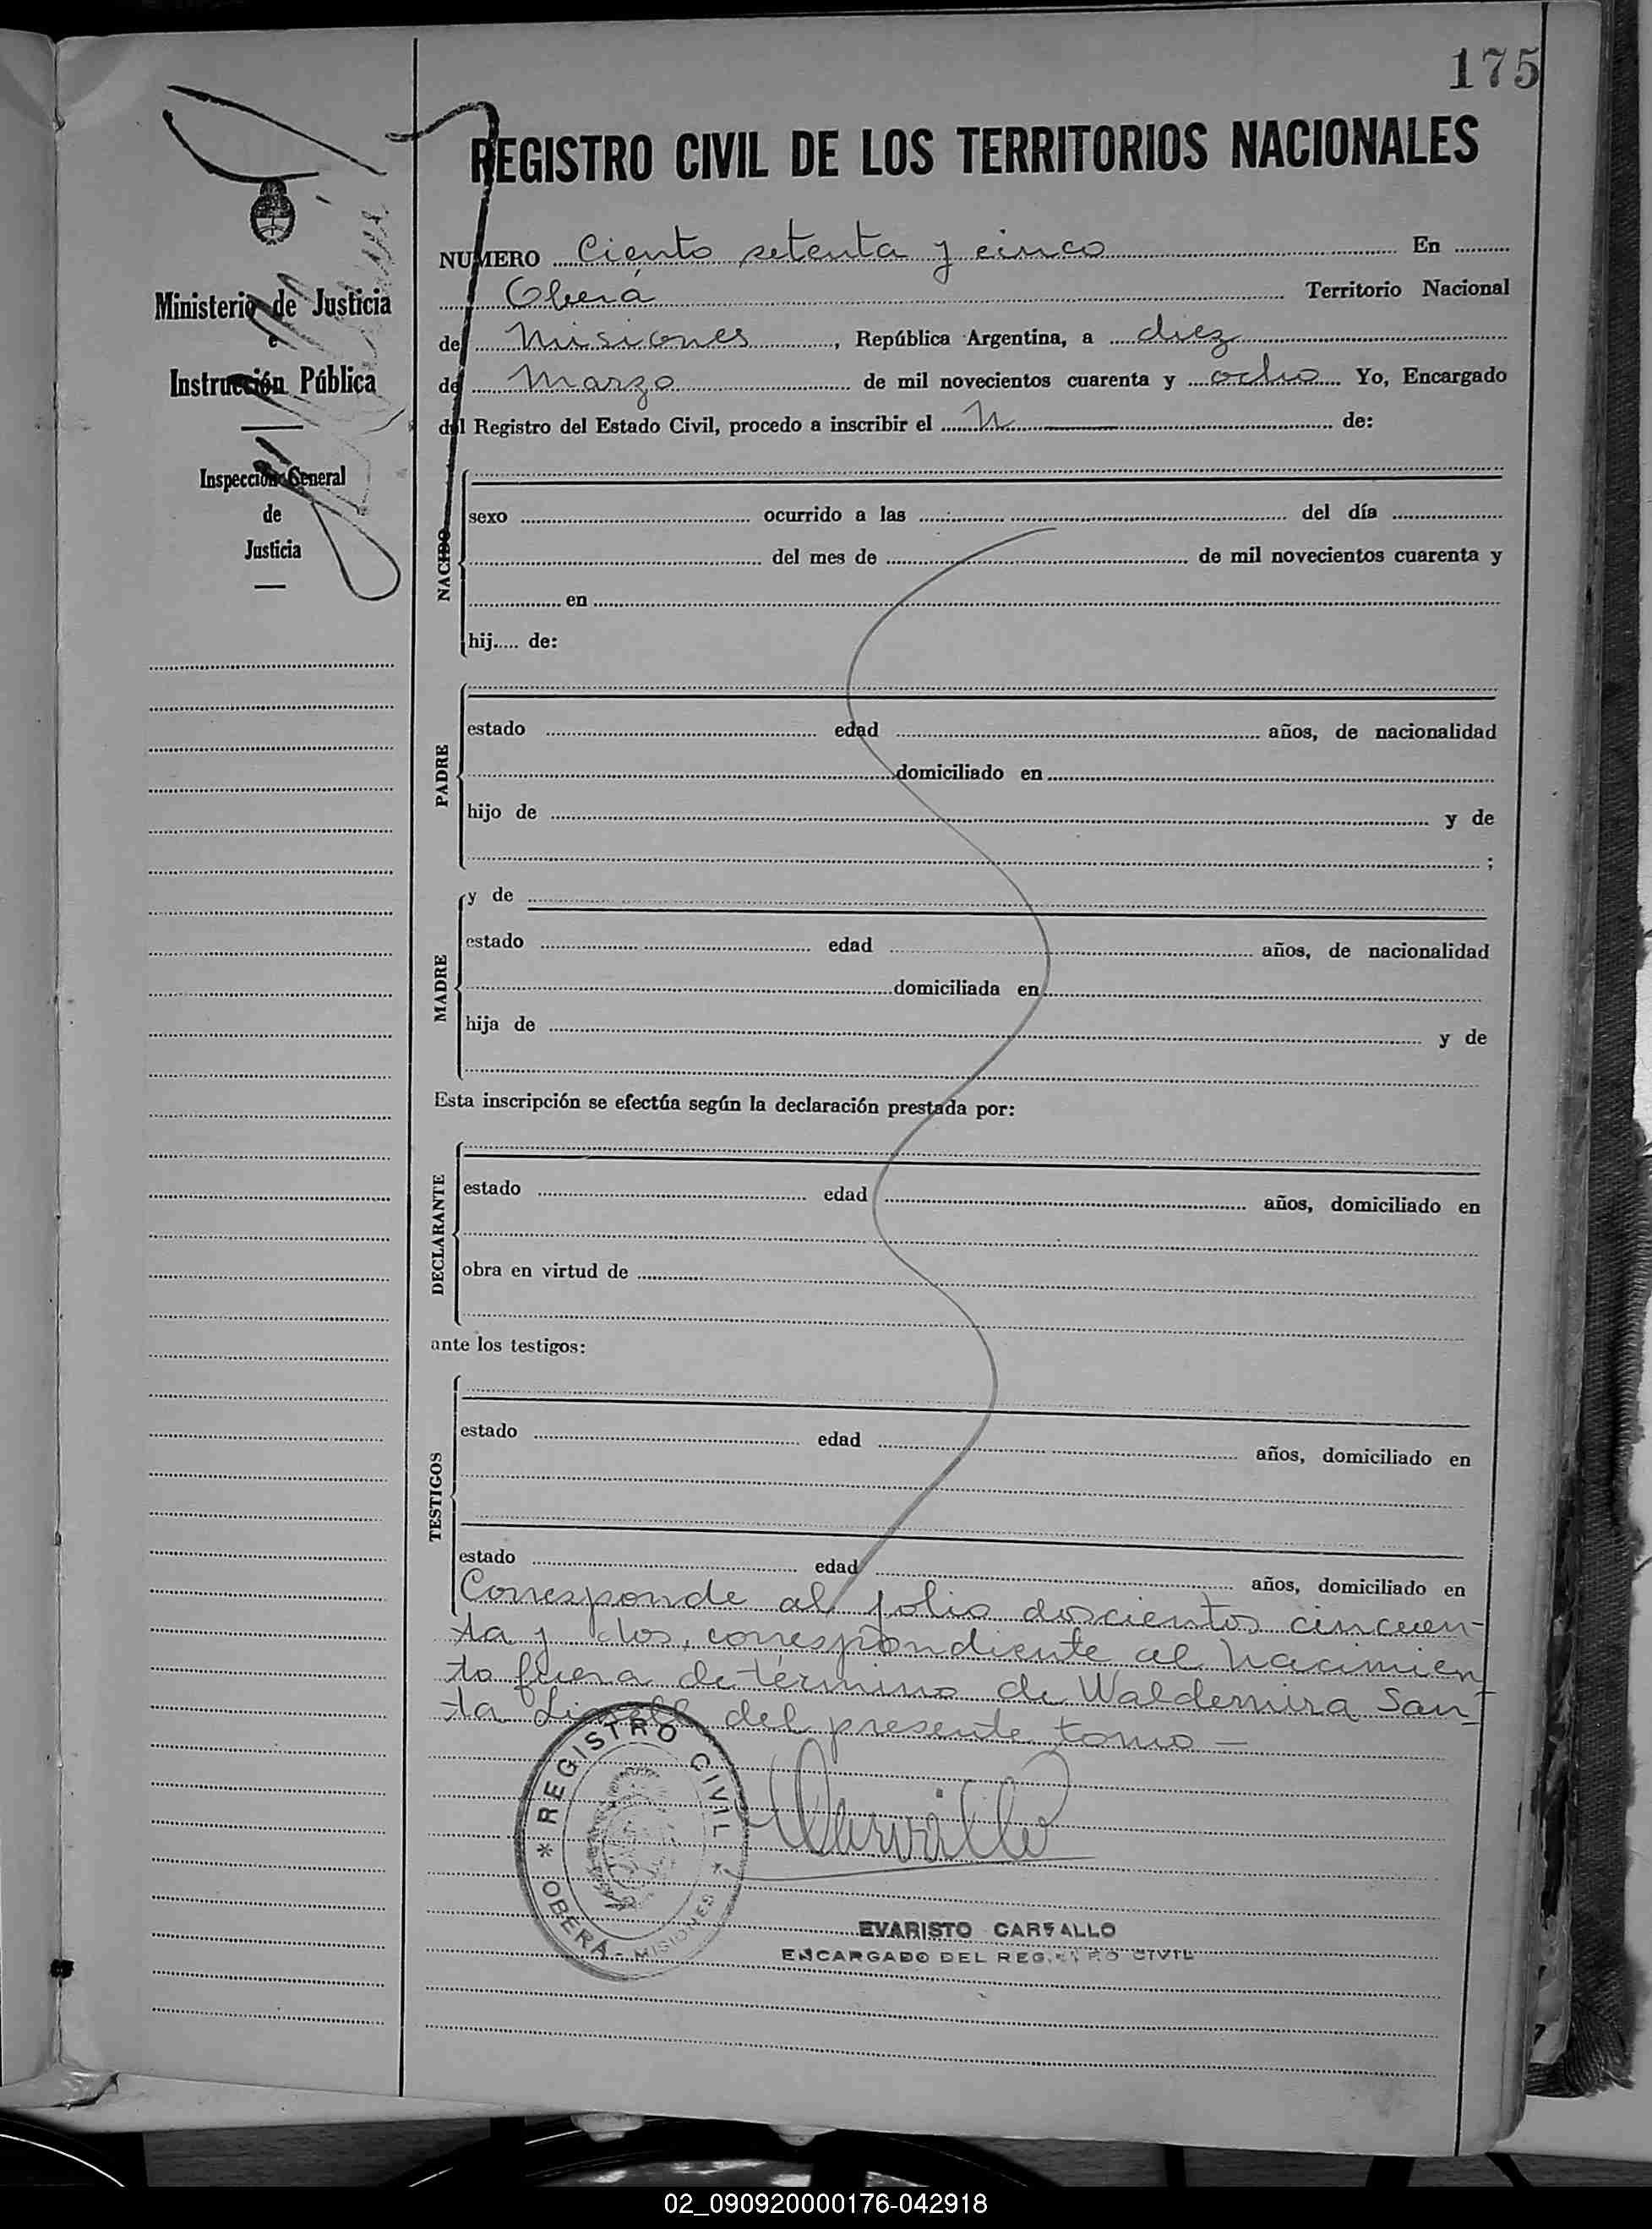 175
REGISTRO CIVIL DE LOS TERRITORIOS NACIONALES
Ministerio de Justicia
e
Instrucción Pública
Inspección General
de
Justicia
NUMERO Ciento setenta y cinco En
Oberá Territorio Nacional
de Misiones, República Argentina, a diez
de Marzo de mil novecientos cuarenta y ocho Yo, Encargado
del Registro del Estado Civil, procedo a inscribir el N de:
NACIDO
sexo ocurrido a las del día
del mes de de mil novecientos cuarenta y
en
hij..... de:
PADRE
estado edad años, de nacionalidad
domiciliado en
hijo de y de
;
MADRE
y de
estado edad años, de nacionalidad
domiciliada en
hija de y de
Esta inscripción se efectúa según la declaración prestada por:
DECLARANTE
estado edad años, domiciliado en
obra en virtud de
ante los testigos:
TESTIGOS
estado edad años, domiciliado en
estado edad años, domiciliado en
Corresponde al folio doscientos cincuen-
ta y dos, correspondiente al nacimien
to fuera de término de Waldemira San-
ta del presente tomo —
* REGISTRO CIVIL *
OBERÁ - MISIONES
EVARISTO CARVALLO
ENCARGADO DEL REGISTRO CIVIL
02_090920000176-042918